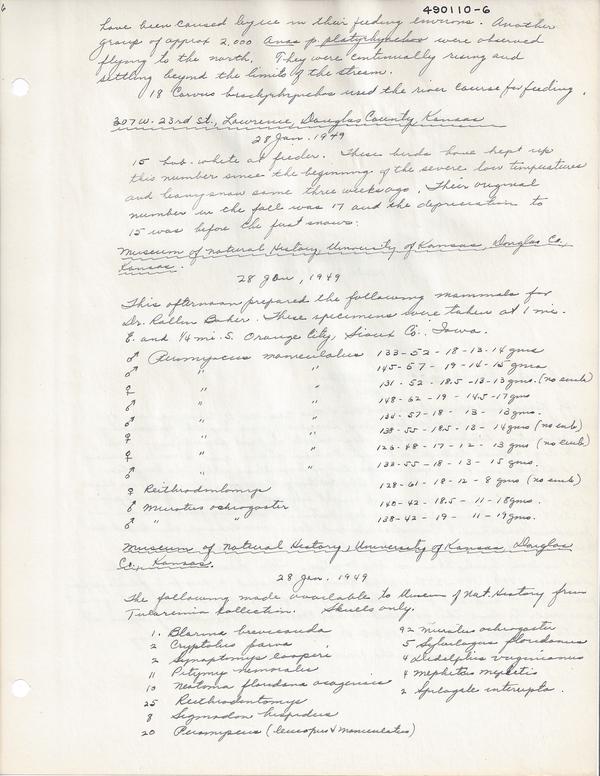 6
490110-6
have been caused by ice in their feeding environs. Another
group of approx 2,000 Anas p. platyrhynchos were observed
flying to the north. They were continually rising and
settling beyond the limits of the stream.
18 Corvus brachyrhynchos used the river course for feeding.
307 W. 23rd St., Lawrence, Douglas County, Kansas
28 Jan. 1949
15 bob-white at feeder. These birds have kept up
this number since the beginning of the severe low temperatures
and heavy snow some three weeks ago. Their original
number in the fall was 17 and the depreciation to
15 was before the first snows.
Museum of Natural History, University of Kansas, Douglas Co.,
Kansas.
28 Jan, 1949
This afternoon prepared the following mammals for
Dr. Rollin Baker. These specimens were taken at 1 mi.
E. and 1/4 mi. S. Orange City, Sioux Co., Iowa.
♂ Peromyscus maniculatus 133-52-18-13-14 gms
♂ " " 145-57-19-14-15 gms
♀ " " 131-52-18.5-13-13 gms. (no emb)
♂ " " 148-62-19-14.5-17 gms
♂ " " 134-57-18-13-13 gms.
♀ " " 138-55-18.5-13-14 gms (no emb)
♀ " " 123-48-17-12-13 gms (no emb)
♂ " " 133-55-18-13-15 gms.
♀ Reithrodontomys 128-61-18-12-8 gms (no emb)
♂ Microtus ochrogaster 140-42-18.5-11-18 gms.
♂ " " 138-42-19-11-19 gms.
Museum of Natural History, University of Kansas, Douglas
Co., Kansas.
28 Jan. 1949
The following made available to Museum of Nat. History from
Tularemia Collection. Skulls only.
1. Blarina brevicauda
2 Cryptotis parva
2 Synaptomys cooperi
11 Pitymys nemoralis
10 Neotoma floridana osagensis
25 Reithrodontomys
8 Sigmodon hispidus
20 Peromyscus (leucopus & maniculatus)
92 Microtus ochrogaster
5 Sylvilagus floridanus
4 Didelphis virginianus
4 Mephitis mephitis
2 Spilogale interrupta.